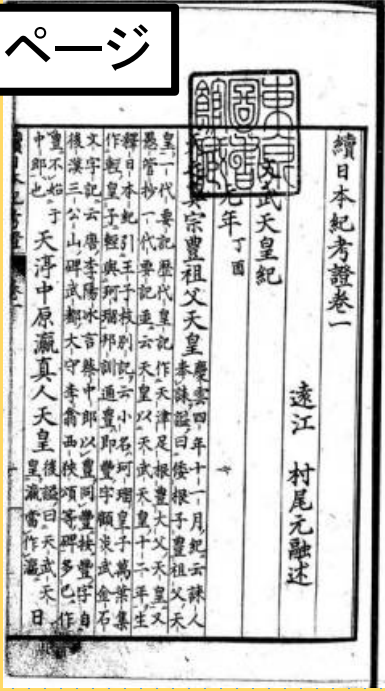 ページ
東京
圖書
館藏
續日本紀考證卷一
遠江 村尾元融述
文武天皇紀
元年丁酉
宗豐祖父天皇
慶雲四年十一月紀云誄人
奉誄謚曰倭根子豐祖父天
皇一代要記歷代皇記作天津足根豐大父天皇又
愚管抄一代要記並云天皇以天武天皇十二年生
釋日本紀引王子枝別記云小名珂瑠皇子萬葉集
作輕皇子輕與珂瑠邦訓通豐即豐字顧炎武金石
文字記云唐李陽冰言蔡中郎以豐同豐按豐字自
後漢三公山碑武都大守李翕西狹頌等碑多已作
豐不始于
中郎也
天渟中原瀛真人天皇
後謚曰天武天
皇瀛當作瀛
日